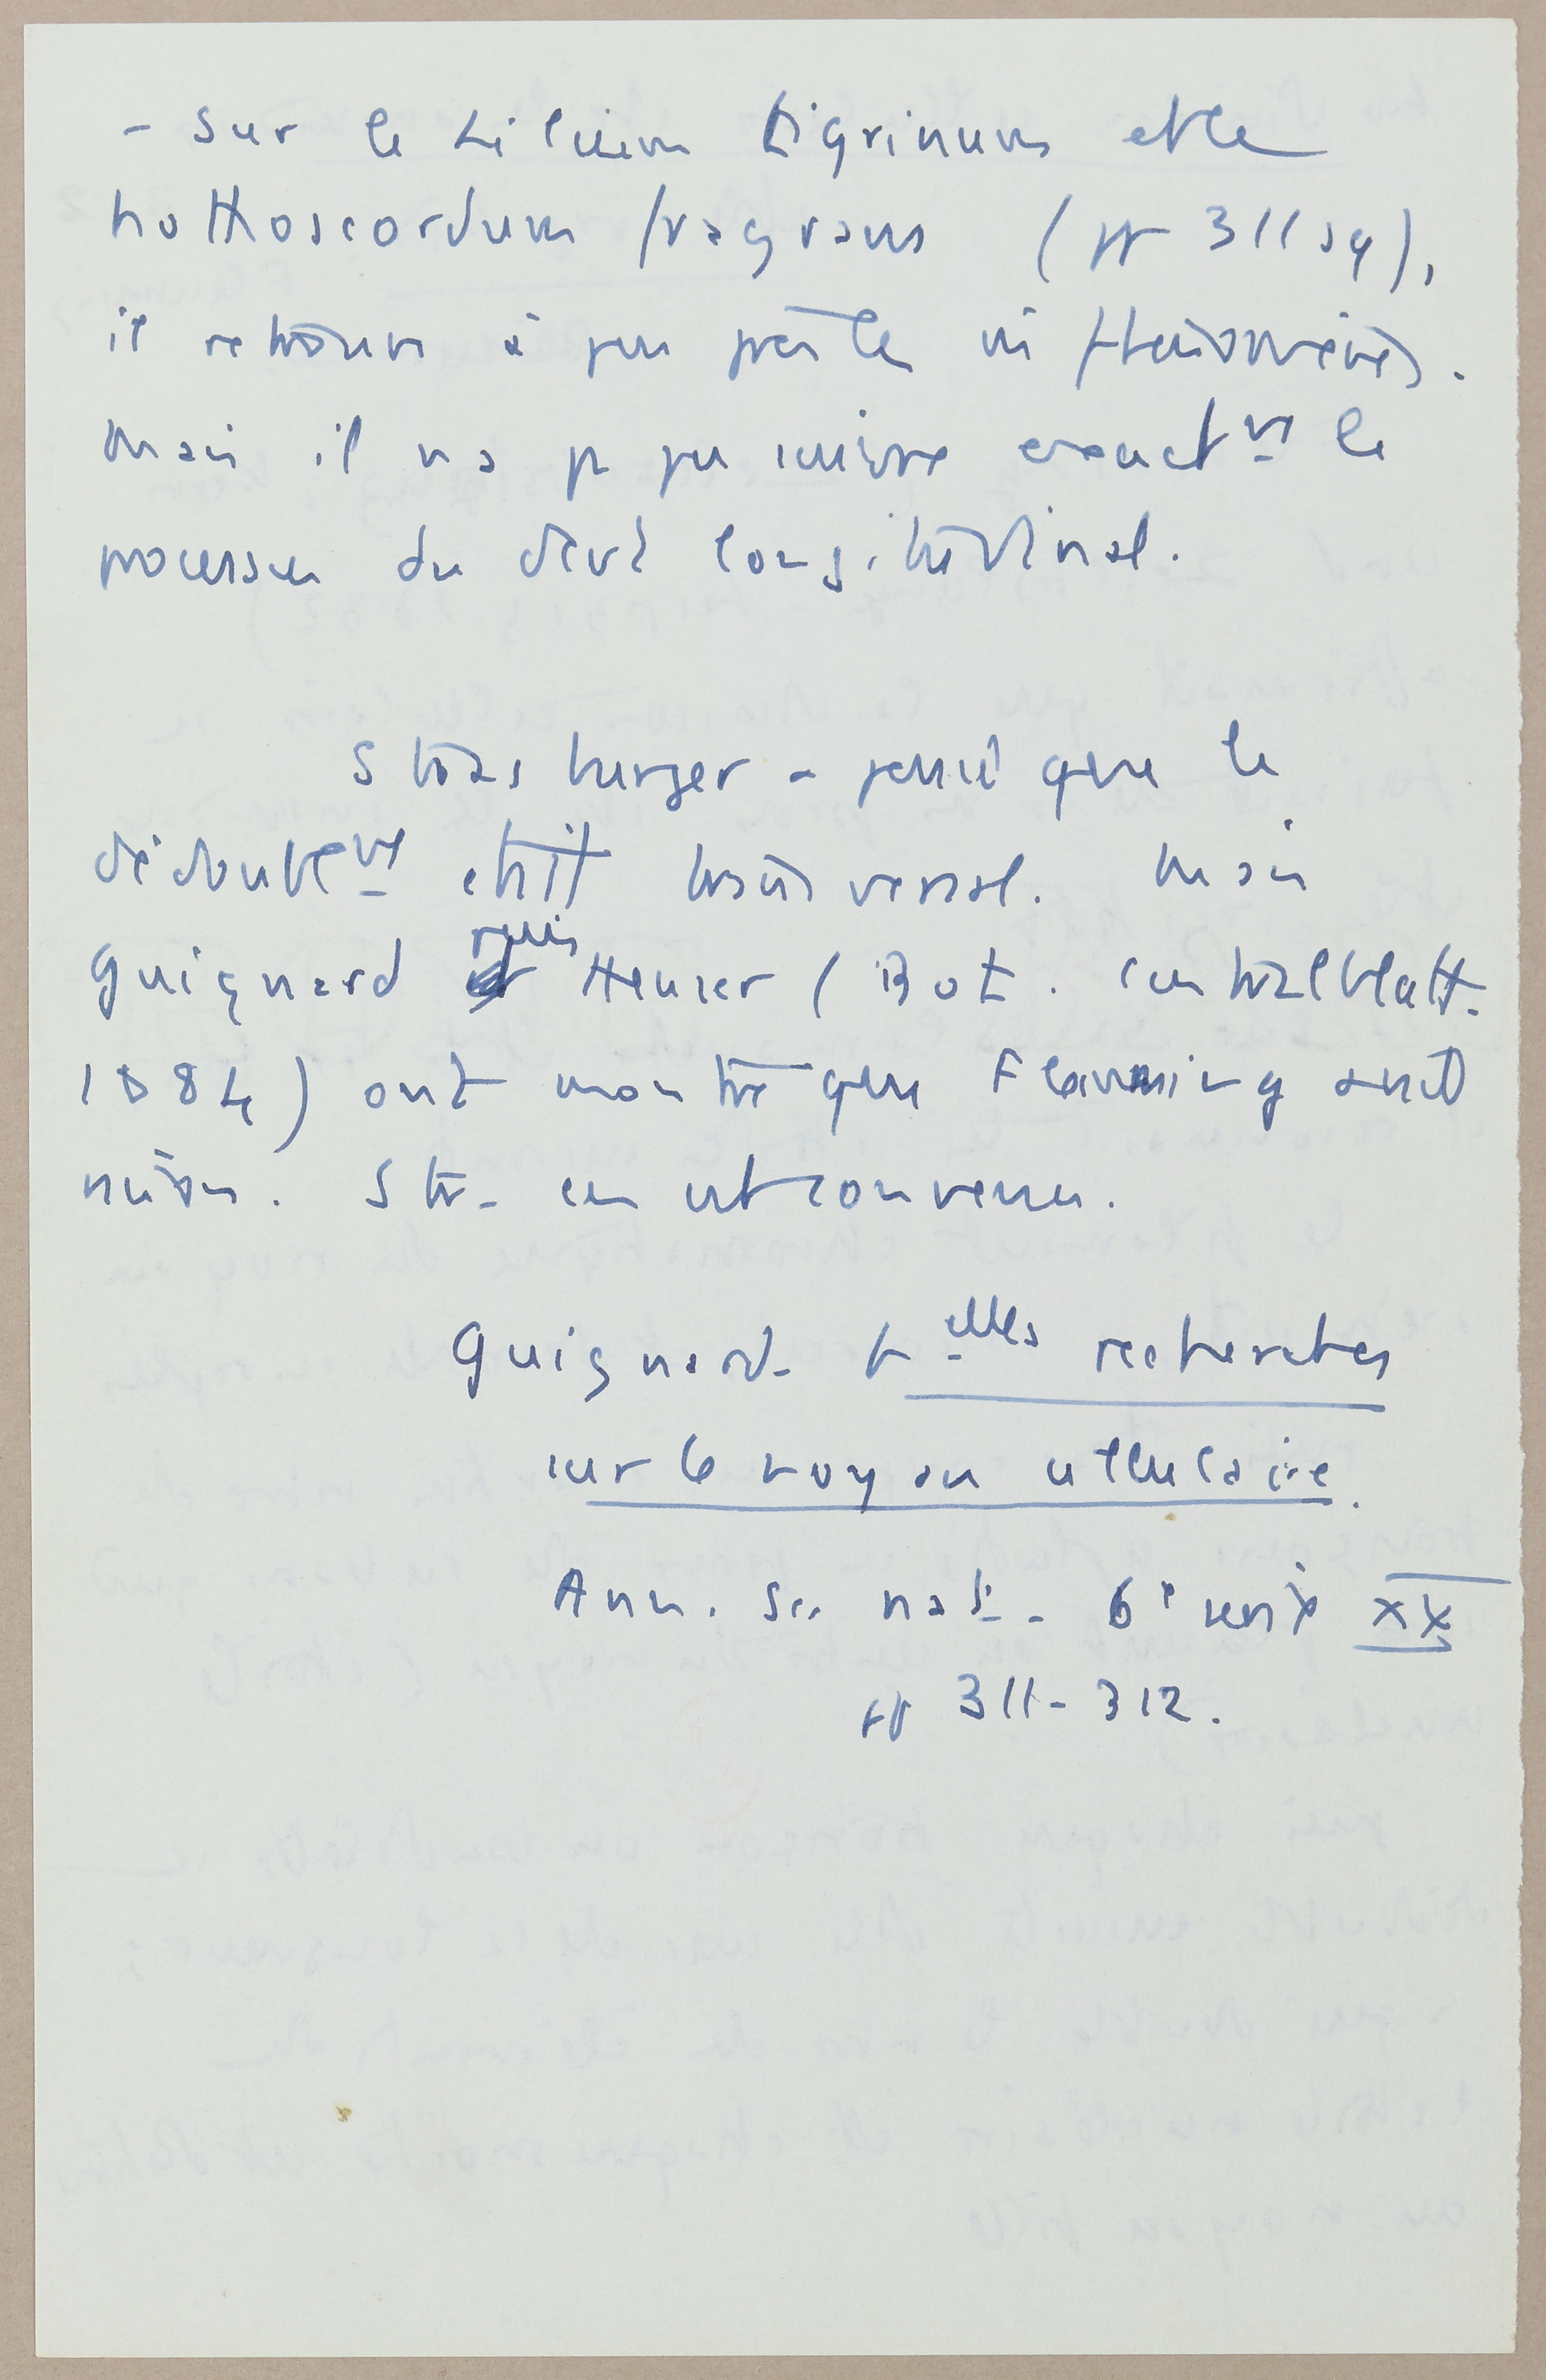 - Sur le Lilium tigrinum et le
Nothoscordum fragrans (pp 311 sq),
il retrouve à peu près les m̂ phénomènes.
Mais il n'a p pu suivre exactᵗ le
processus du dévᵗ longitudinal.
Strasburger a pensé que le
dédoublemᵗ était transversal. Mais
Guignard puis Heuser (Bot. Centralblatt.
1884) ont montré que Flemming avait
raison. Str. en est convenu.
Guignard Nelles recherches
sur le noyau cellulaire.
Ann. Sc. nat. 6e série XX
pp 311-312.